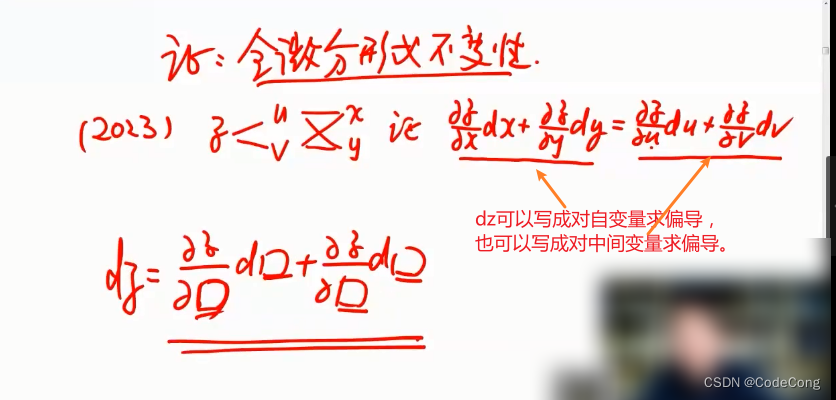 证：全微分形式不变性.
(2023) z < u v x y 证 ∂z/∂x dx + ∂z/∂y dy = ∂z/∂u du + ∂z/∂v dv
dz可以写成对自变量求偏导，
也可以写成对中间变量求偏导。
dz = ∂z/∂□ d□ + ∂z/∂□ d□
CSDN @CodeCong